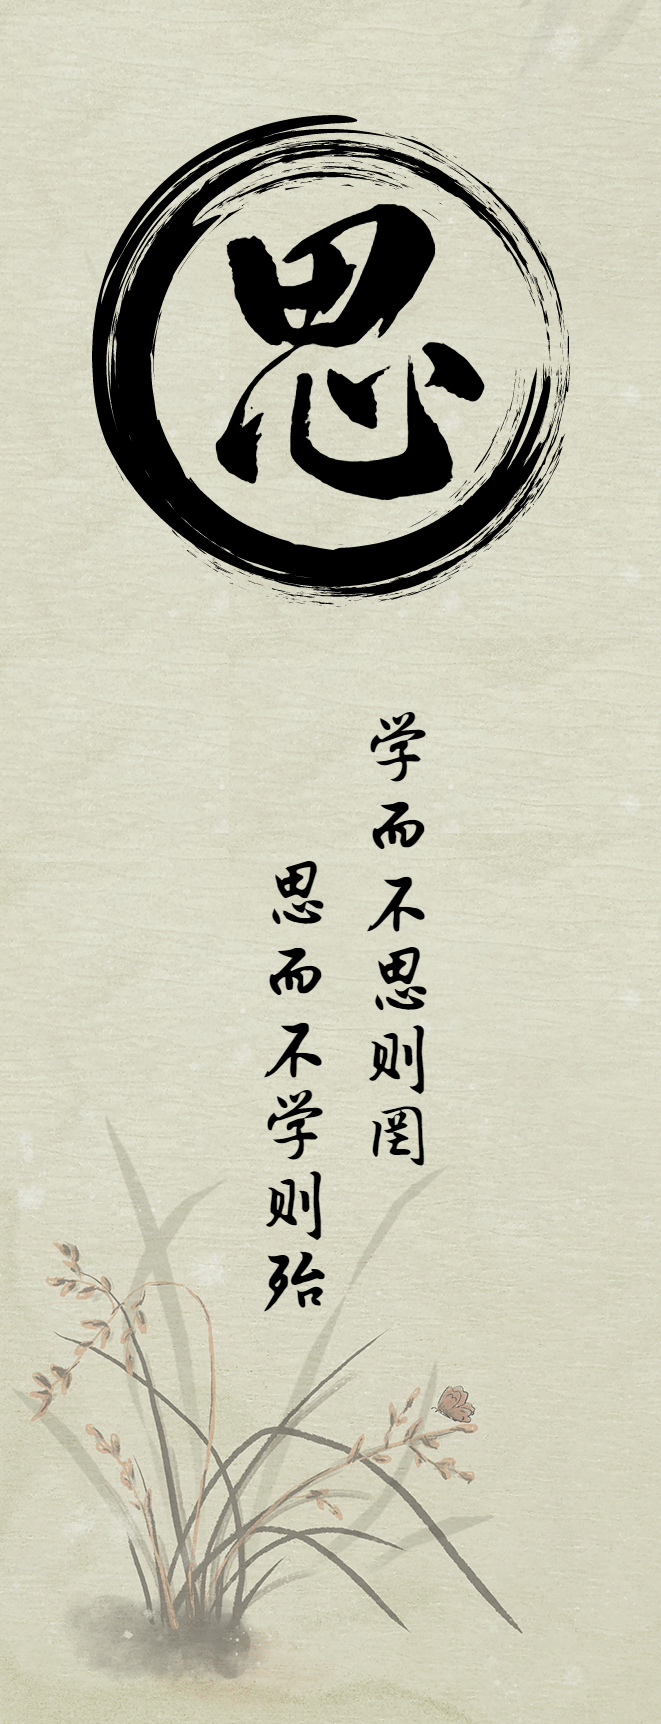 思
学而不思则罔
思而不学则殆